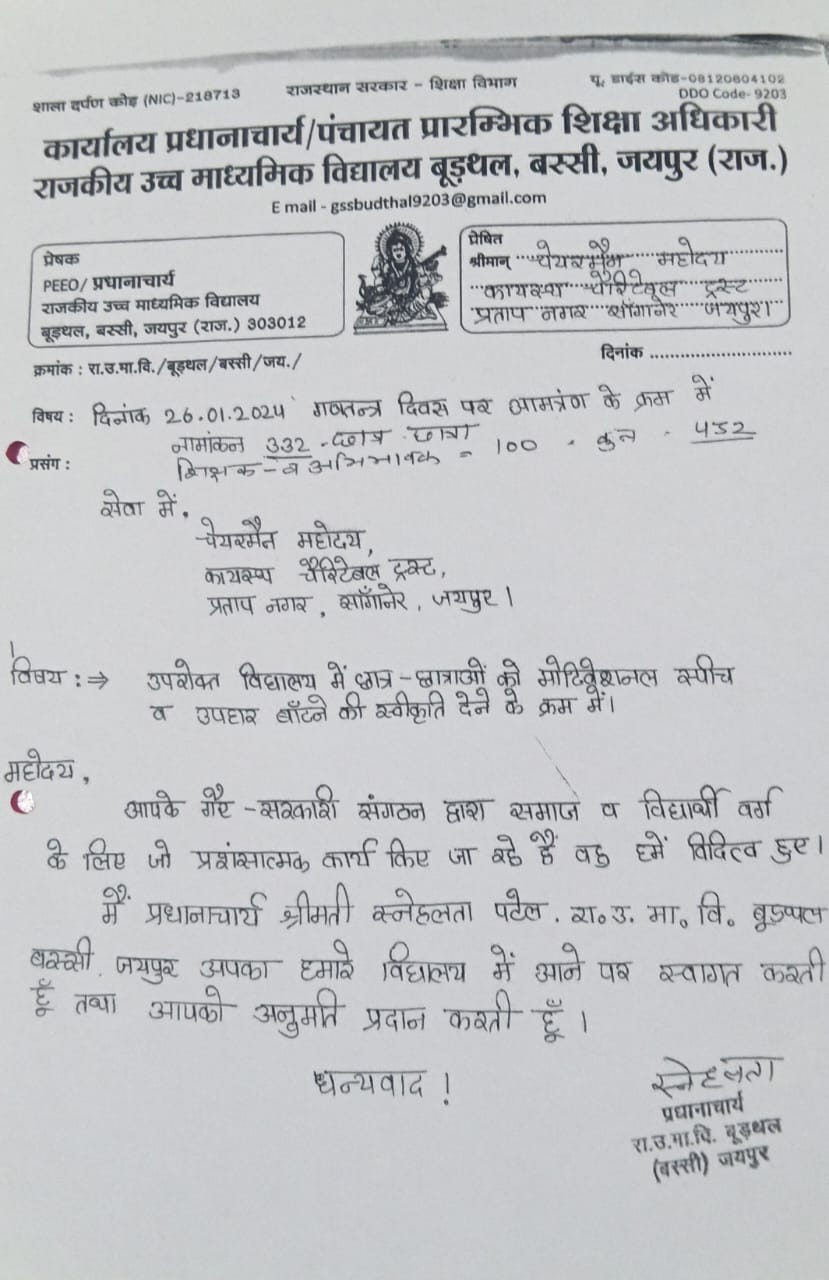 शाला दर्पण कोड (NIC)-218713 राजस्थान सरकार - शिक्षा विभाग यू. डाईस कोड-08120804102
DDO Code- 9203
कार्यालय प्रधानाचार्य/पंचायत प्रारम्भिक शिक्षा अधिकारी
राजकीय उच्च माध्यमिक विद्यालय बूड़थल, बस्सी, जयपुर (राज.)
E mail - gssbudthal9203@gmail.com
प्रेषक
PEEO/ प्रधानाचार्य
राजकीय उच्च माध्यमिक विद्यालय
बूड़थल, बस्सी, जयपुर (राज.) 303012
प्रेषित
श्रीमान् चेयरमैन महोदय
कायस्था चैरिटेबूल ट्रस्ट
प्रताप नगर साँगानेर जयपुर।
क्रमांक : रा.उ.मा.वि./बूड़थल/बस्सी/जय./
दिनांक ..............................
विषय : दिनांक 26.01.2024 गणतन्त्र दिवस पर आमत्रंण के क्रम में
नामांकन 332 - छात्र छात्रा
प्रसंग : शिक्षक - व अभिभावक = 100 - कुल - 432
सेवा में,
चेयरमैन महोदय,
कायस्थ चैरिटेबल ट्रस्ट,
प्रताप नगर, साँगानेर, जयपुर।
विषय :⇒ उपरोक्त विद्यालय में छात्र-छात्राओं को मोटिवेशनल स्पीच
व उपहार बाँटने की स्वीकृति देने के क्रम में।
महोदय,
आपके गैर-सरकारी संगठन द्वारा समाज व विद्यार्थी वर्ग
के लिए जो प्रशंसात्मक कार्य किए जा रहे हैं वह हमें विदित्व हुए।
मैं प्रधानाचार्य श्रीमती स्नेहलता पटेल. रा.उ. मा. वि. बूडथल
बस्सी, जयपुर अपका हमारे विद्यालय में आने पर स्वागत करती
हूँ तथा आपको अनुमति प्रदान करती हूँ।
धन्यवाद!
स्नेहलता
प्रधानाचार्य
रा.उ.मा.वि. बूड़थल
(बस्सी) जयपुर